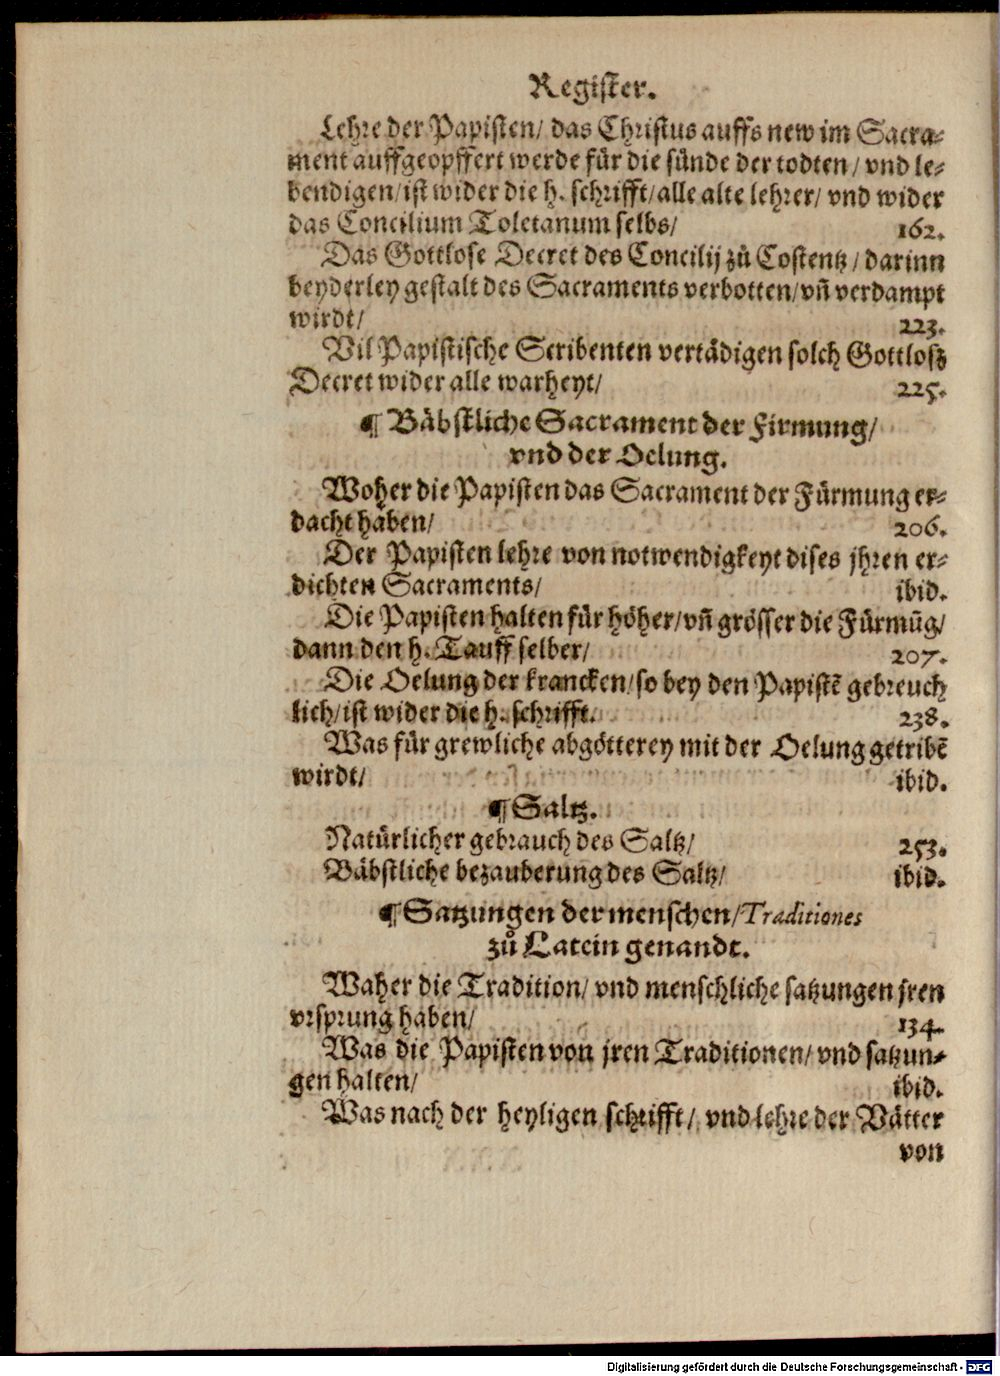 Register.
Lehre der Papisten/ das Christus auffs new im Sacra-
ment auffgeopffert werde für die sünde der todten/ vnd le-
bendigen/ ist wider die h. schrifft/ alle alte lehrer/ vnd wider
das Concilium Toletanum selbs/ 162.
Das Gottlose Decret des Concilij zů Costentz/ darinn
beyderley gestalt des Sacraments verbotten/ vñ verdampt
wirdt/ 223.
Vil Papistische Scribenten vertädigen solch Gottlosz
Decret wider alle warheyt/ 225.
¶ Bäbstliche Sacrament der Firmung/
vnd der Oelung.
Woher die Papisten das Sacrament der Fürmung er-
dacht haben/ 206.
Der Papisten lehre von notwendigkeyt dises jhren er-
dichten Sacraments/ ibid.
Die Papisten halten für höher/ vñ grösser die Fürmūg/
dann den h. Tauff selber/ 207.
Die Oelung der krancken/ so bey den Papistē gebreuch
lich/ ist wider die h. schrifft. 238.
Was für grewliche abgötterey mit der Oelung getribē
wirdt/ ibid.
¶ Saltz.
Natürlicher gebrauch des Saltz/ 253.
Bäbstliche bezauberung des Saltz/ ibid.
¶ Satzungen der menschen/ Traditiones
zů Latein genandt.
Waher die Tradition/ vnd menschliche satzungen jren
vrsprung haben/ 134.
Was die Papisten von jren Traditionen/ vnd satzun-
gen halten/ ibid.
Was nach der heyligen schrifft/ vnd lehre der Vätter
von
Digitalisierung gefördert durch die Deutsche Forschungsgemeinschaft - DFG